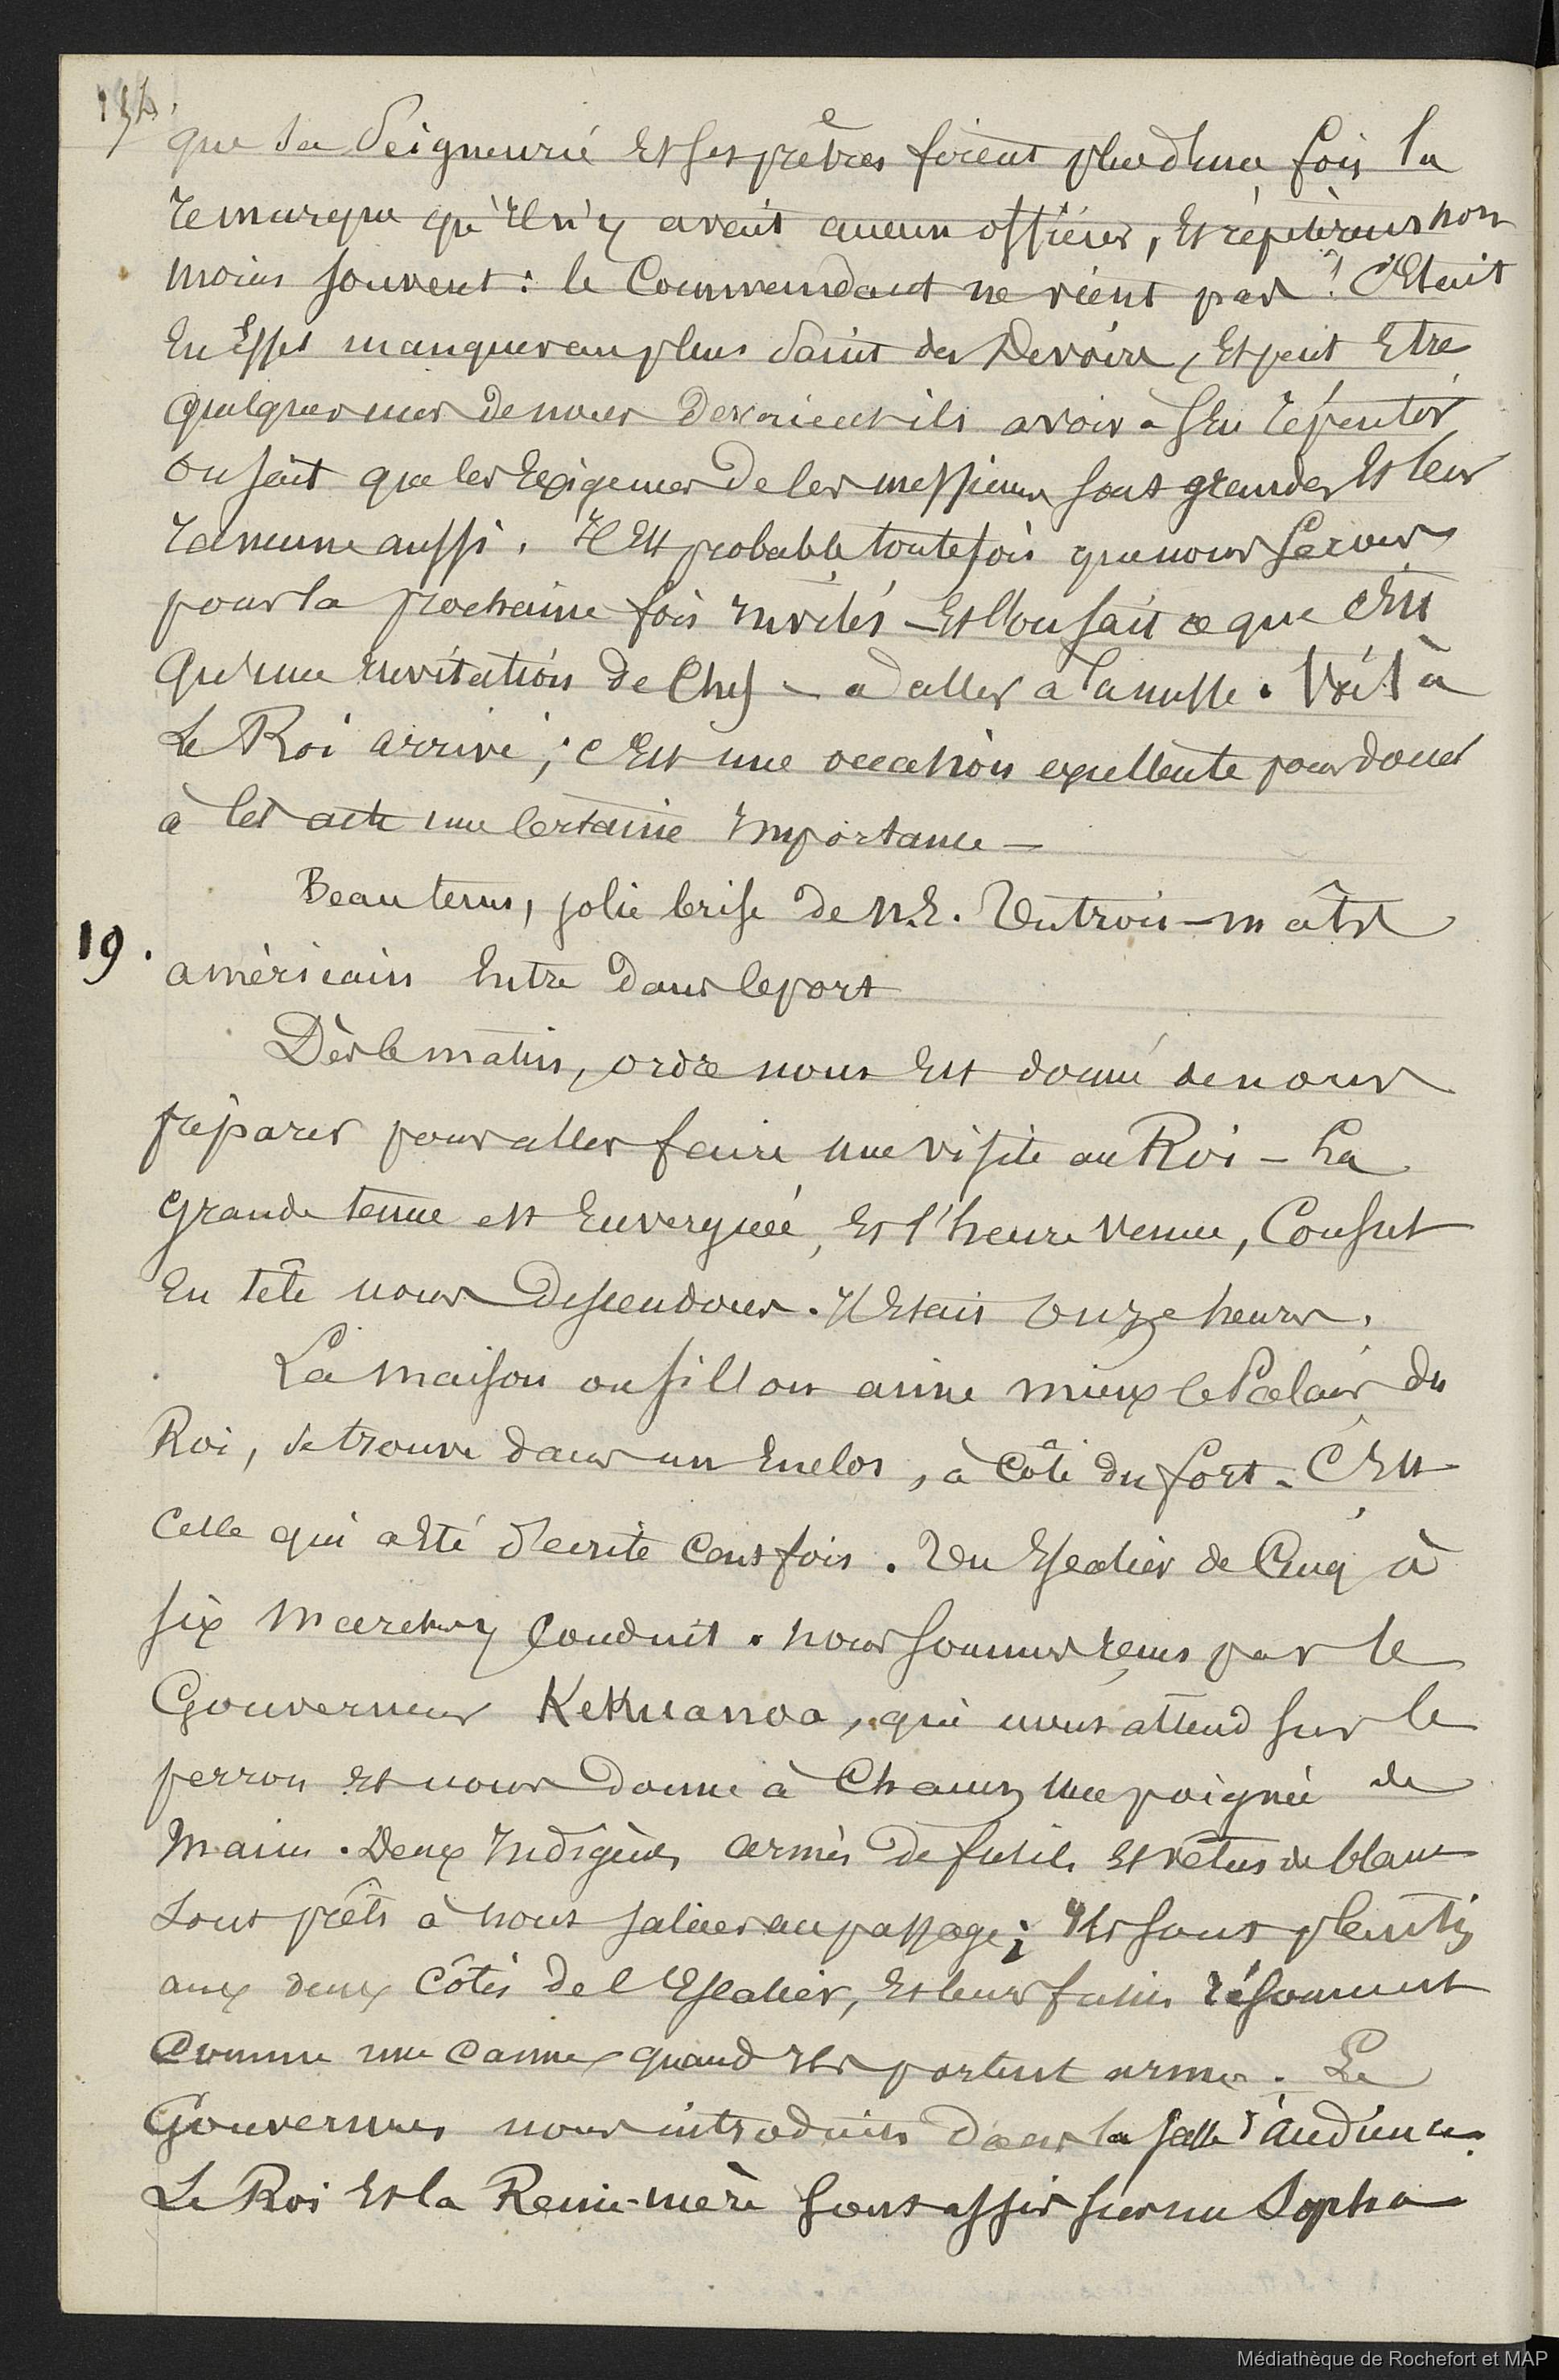 134.
que sa Seigneurie et ses prêtres firent plus d'une fois la
remarque qu'il n'y avait aucun officier, et répétèrent non
moins souvent : le Commandant ne vient pas ? C'était
en effet manquer au plus saint des Devoirs, et peut être
quelques uns de nous devraient ils avoir à s'en répentir
on sait que les Exigences de ces messieurs sont grandes et leur
rancune aussi. Il est probable toutefois que nous serons
pour la prochaine fois invités - et l'on sait ce que c'est
qu'une invitation de Chef - à aller à la messe. Voilà
Le Roi arrivé ; c'est une occasion excellente pour donner
à cet acte une certaine importance -
Beau tems, jolie brise de N.E. Un trois-mâts
19. américain entre dans le port
Dès le matin, ordre nous est donné de nous
préparer pour aller faire une visite au Roi - La
grande tenue est enverguée, et l'heure venue, Consul
en tête nous descendons. Il était onze heures.
La maison ou si l'on aime mieux le Palais du
Roi, se trouve dans un enclos, à côté du fort. C'est
celle qui a été décrite cent fois. Un escalier de cinq à
six marches y conduit. nous sommes reçus par le
Gouverneur Kekuanoa, qui nous attend sur le
perron et nous donne à chacun une poignée de
main. Deux indigènes armés de fusils et vêtus de blanc
sont prêts à nous saluer au passage ; ils sont plantés
aux deux côtés de l'Escalier, et leurs fusils résonnent
comme une canne quand ils portent armes. Le
Gouverneur nous introduit dans la salle d'audience.
Le Roi et la Reine-mère sont assis sur un Sopha
Médiathèque de Rochefort et MAP